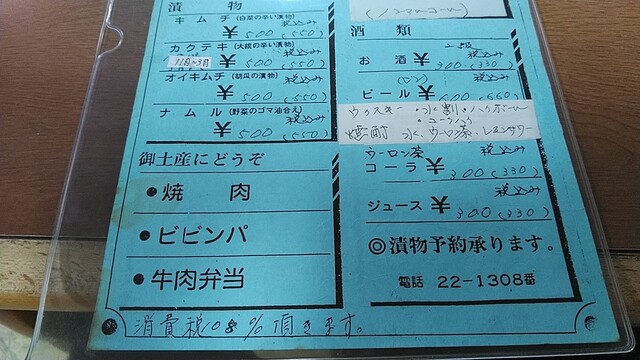 漬物
キムチ(白菜の辛い漬物) 税込み
¥500(550)
カクテキ(大根の辛い漬物) 税込み
11月~3月 ¥500(550)
オイキムチ(胡瓜の漬物) 税込み
¥500(550)
ナムル(野菜のゴマ油合え) 税込み
¥500(550)
御土産にどうぞ
●焼肉
●ビビンパ
●牛肉弁当
(ノンアルコール)
酒類
お酒 ¥300(330) 税込み
ビール ¥600(660) 税込み
ウイスキー・水割・ハイボール
・コークハイ
焼酎 水、ウーロン茶、レモンサワー
ウーロン茶 税込み
コーラ ¥300(330)
税込み
ジュース ¥300(330)
◎漬物予約承ります。
電話 22-1308番
消費税10%頂きます。